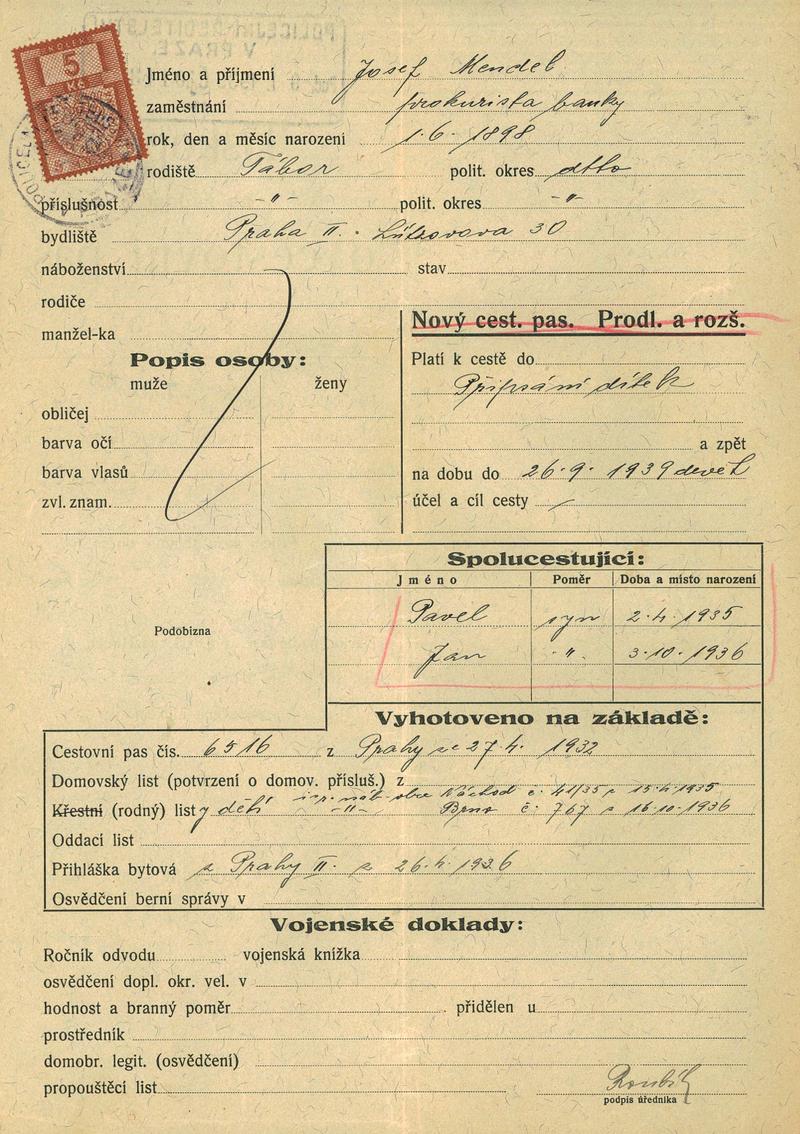 KOLEK
5
Kč
Jméno a příjmení Josef Mendel
zaměstnání prokurista banky
rok, den a měsíc narození 1.6. 1898
rodiště Tábor polit. okres dtto
příslušnost -"- polit. okres -"-
bydliště Praha II. - Lützovova 30
náboženství stav
rodiče
manžel-ka
Nový cest. pas. Prodl. a rozš.
Popis osoby:
muže ženy
obličej
barva očí
barva vlasů
zvl. znam.
Platí k cestě do
Připsání dítek
a zpět
na dobu do 26.9. 1939 devět
účel a cíl cesty
Spolucestující:
Jméno Poměr Doba a místo narození
Pavel syn 2.4. 1935
Jan -"- 3.10. 1936
Podobizna
Vyhotoveno na základě:
Cestovní pas čís. 6516 z Prahy ze 27.4. 1932
Domovský list (potvrzení o domov. přísluš.) z
Křestní (rodný) list dětí náb. obce Náchod č. 41/35 z 15.4.1935
-"- Brno č. 767 z 16.10.1936
Oddací list
Přihláška bytová z Prahy II. z 26.4.1936
Osvědčení berní správy v
Vojenské doklady:
Ročník odvodu vojenská knížka
osvědčení dopl. okr. vel. v
hodnost a branný poměr přidělen u
prostředník
domobr. legit. (osvědčení)
propouštěcí list
podpis úředníka